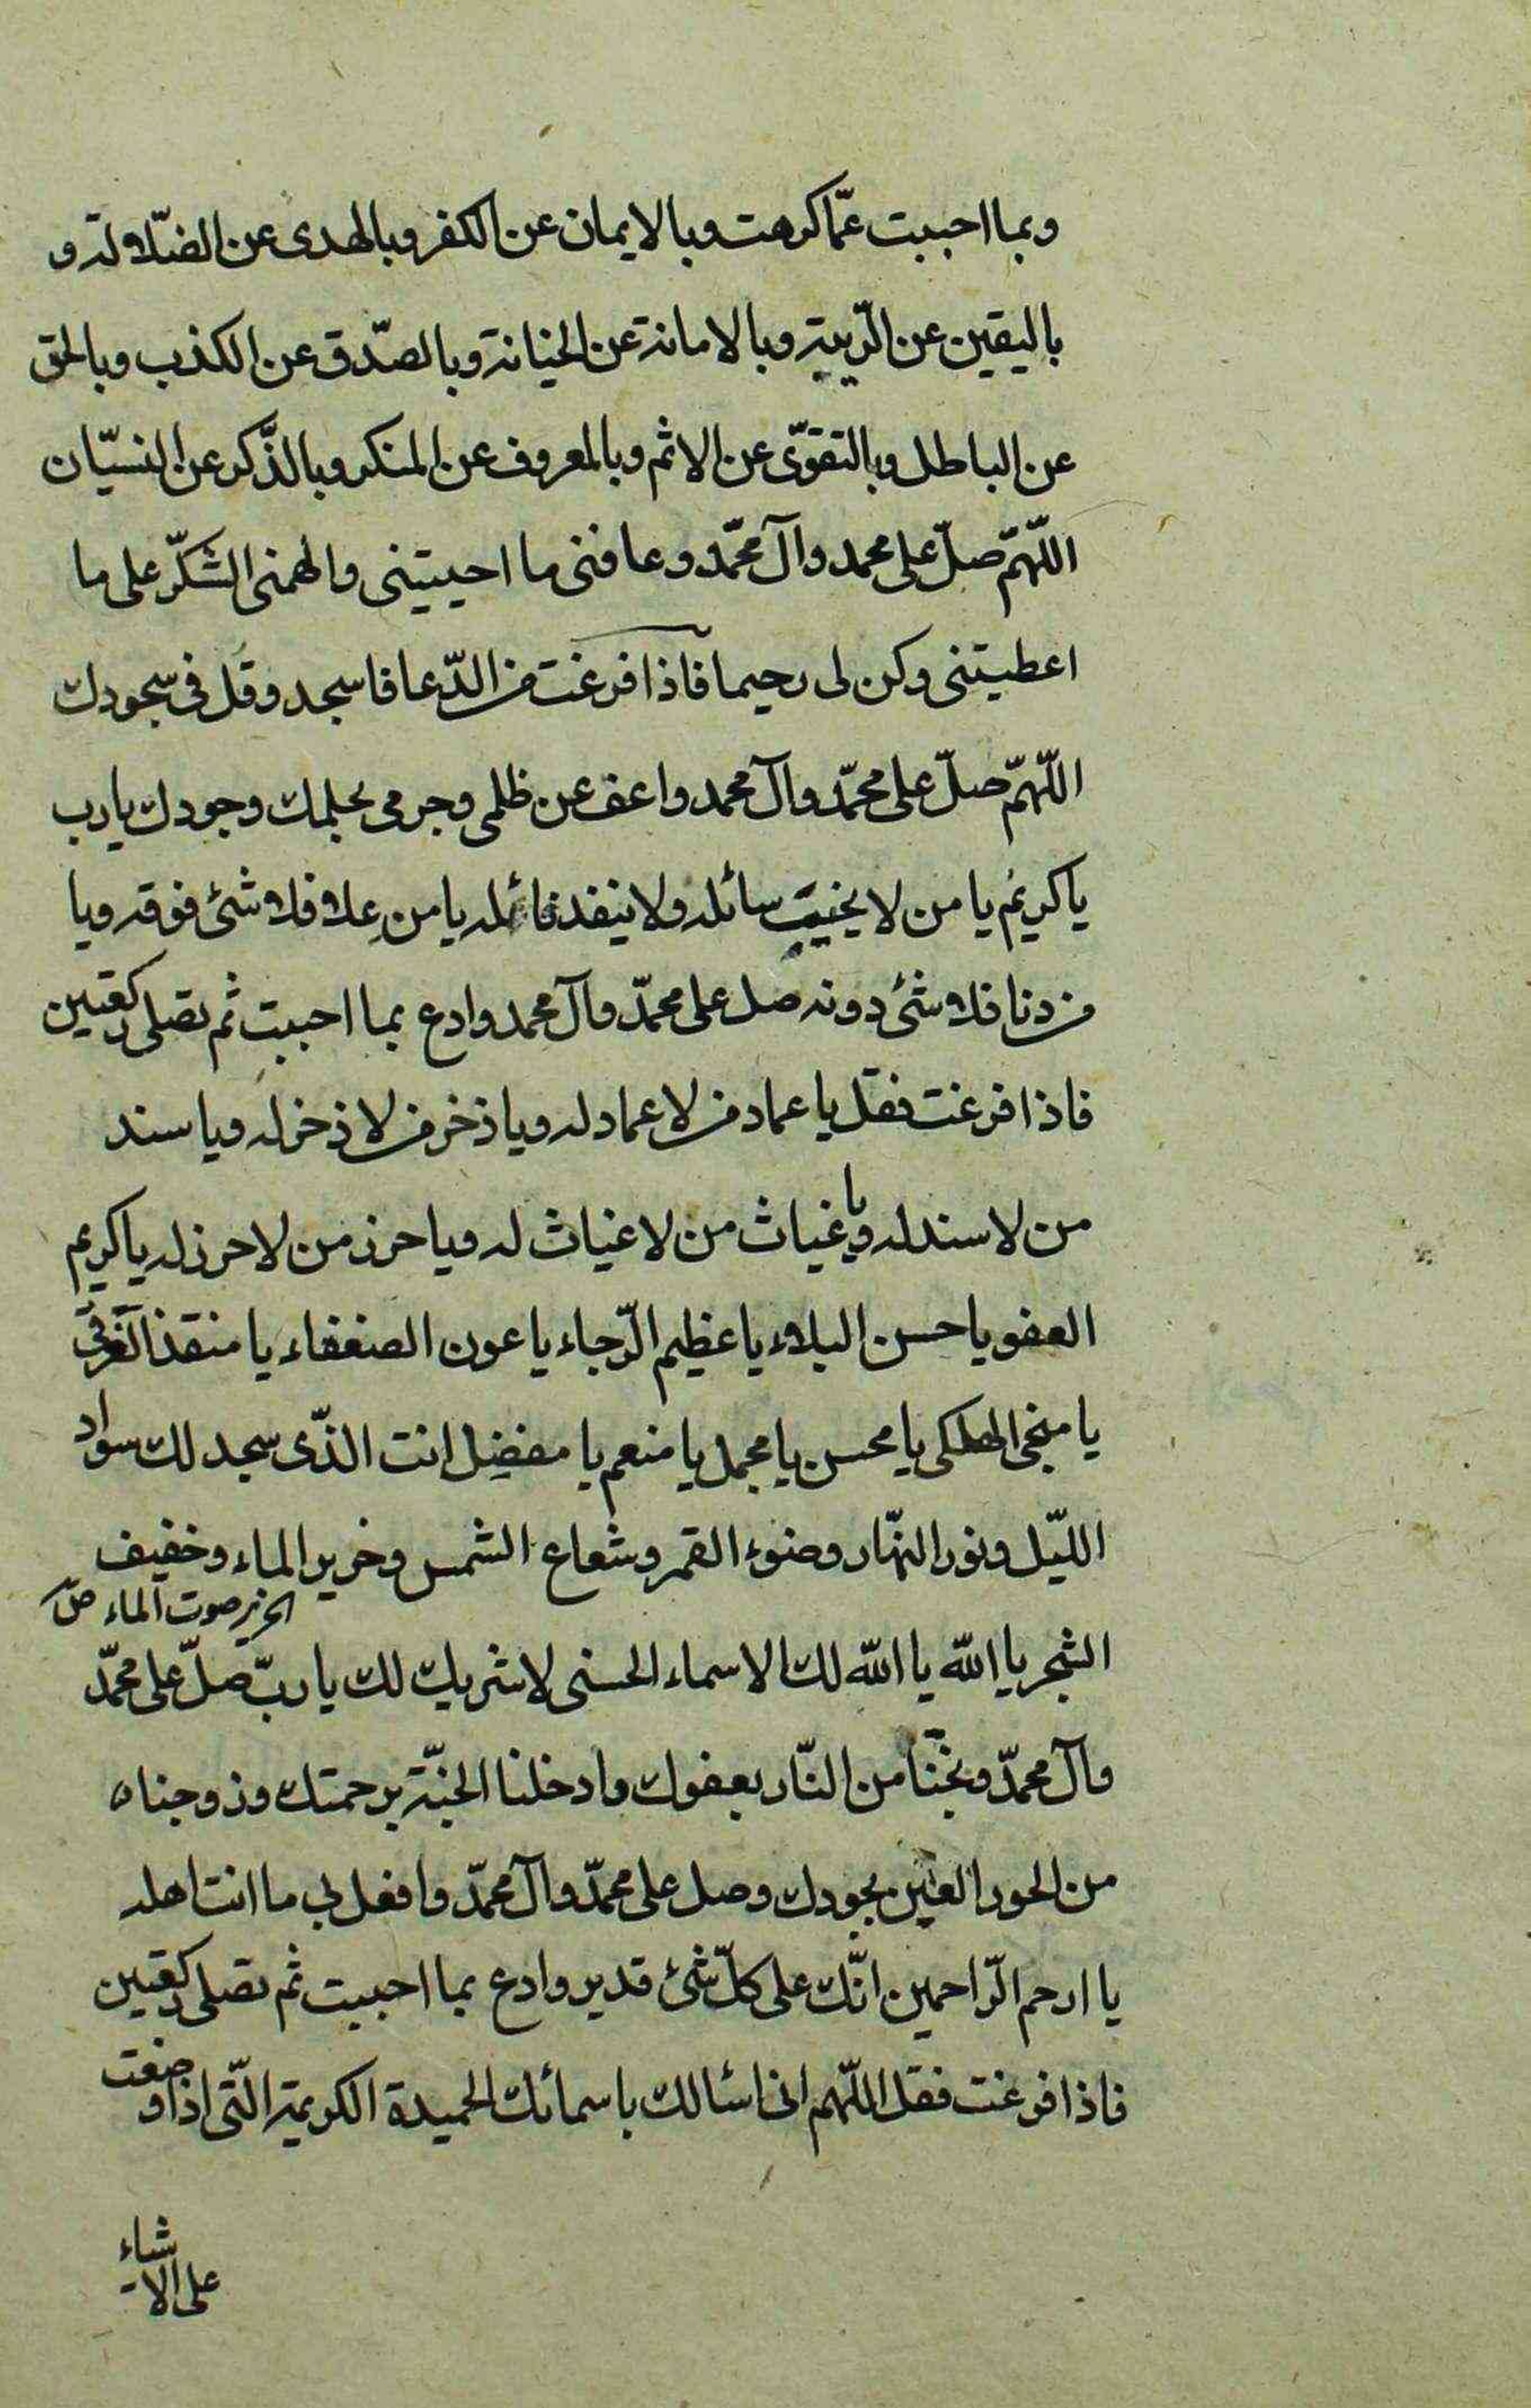 وبما احببت عمّا كرهت وبالايمان عن الكفر وبالهدى عن الضّلالة و
باليقين عن الرّيبة وبالامانة عن الخيانة وبالصّدق عن الكذب وبالحق
عن الباطل وبالتقوّى عن الاثم وبالمعروف عن المنكر وبالذّكر عن النسيّان
اللّهمّ صلّ على محمد وآل محمّد وعافنى ما احييتنى والهمنى الشكرّ على ما
اعطيتنى وكن لى رحيما فاذا فرغت من الدّعا فاسجد وقل فى سجودك
اللّهمّ صلّ على محمّد وآل محمد واعف عن ظلمى وجرمى بحلمك وجودك يا رب
يا كريم يا من لا يخيب سائله ولا ينفد نائله يا من علا فلا شئ فوقه ويا
من دنا فلا شئ دونه صل على محمّد وآل محمد وادع بما احببت ثم تصلى ركعتين
فاذا فرغت فقل يا عماد من لا عماد له ويا ذخر من لا ذخر له ويا سند
من لا سند له ويا غياث من لا غياث له ويا حرز من لا حرز له يا كريم
العفو يا حسن البلاء يا عظيم الرّجاء يا عون الضعفاء يا منقذ الغرقى
يا منجى الهلكى يا محسن يا مجمل يا منعم يا مفضل انت الذّى سجد لك سواد
الليّل ونور النهّار وضوء القمر وشعاع الشمس وخرير الماء وخفيف
الخرير صوت الماء ص
الشجر يا الله يا الله لك الاسماء الحسنى لا شريك لك يا ربّ صلّ على محمّد
وآل محمّد ونجّنا من النّار بعفوك وادخلنا الجنّة برحمتك وزوجناه
من الحور العين بجودك وصل على محمّد وآل محمّد وافعل بى ما انت اهله
يا ارحم الرّاحمين انّك على كلّ شئ قدير وادع بما احببت ثم تصلى ركعتين
فاذا فرغت فقل اللّهم انى اسئالك باسمائك الحميدة الكريمة التّى اذا وضعت
على الاشاء